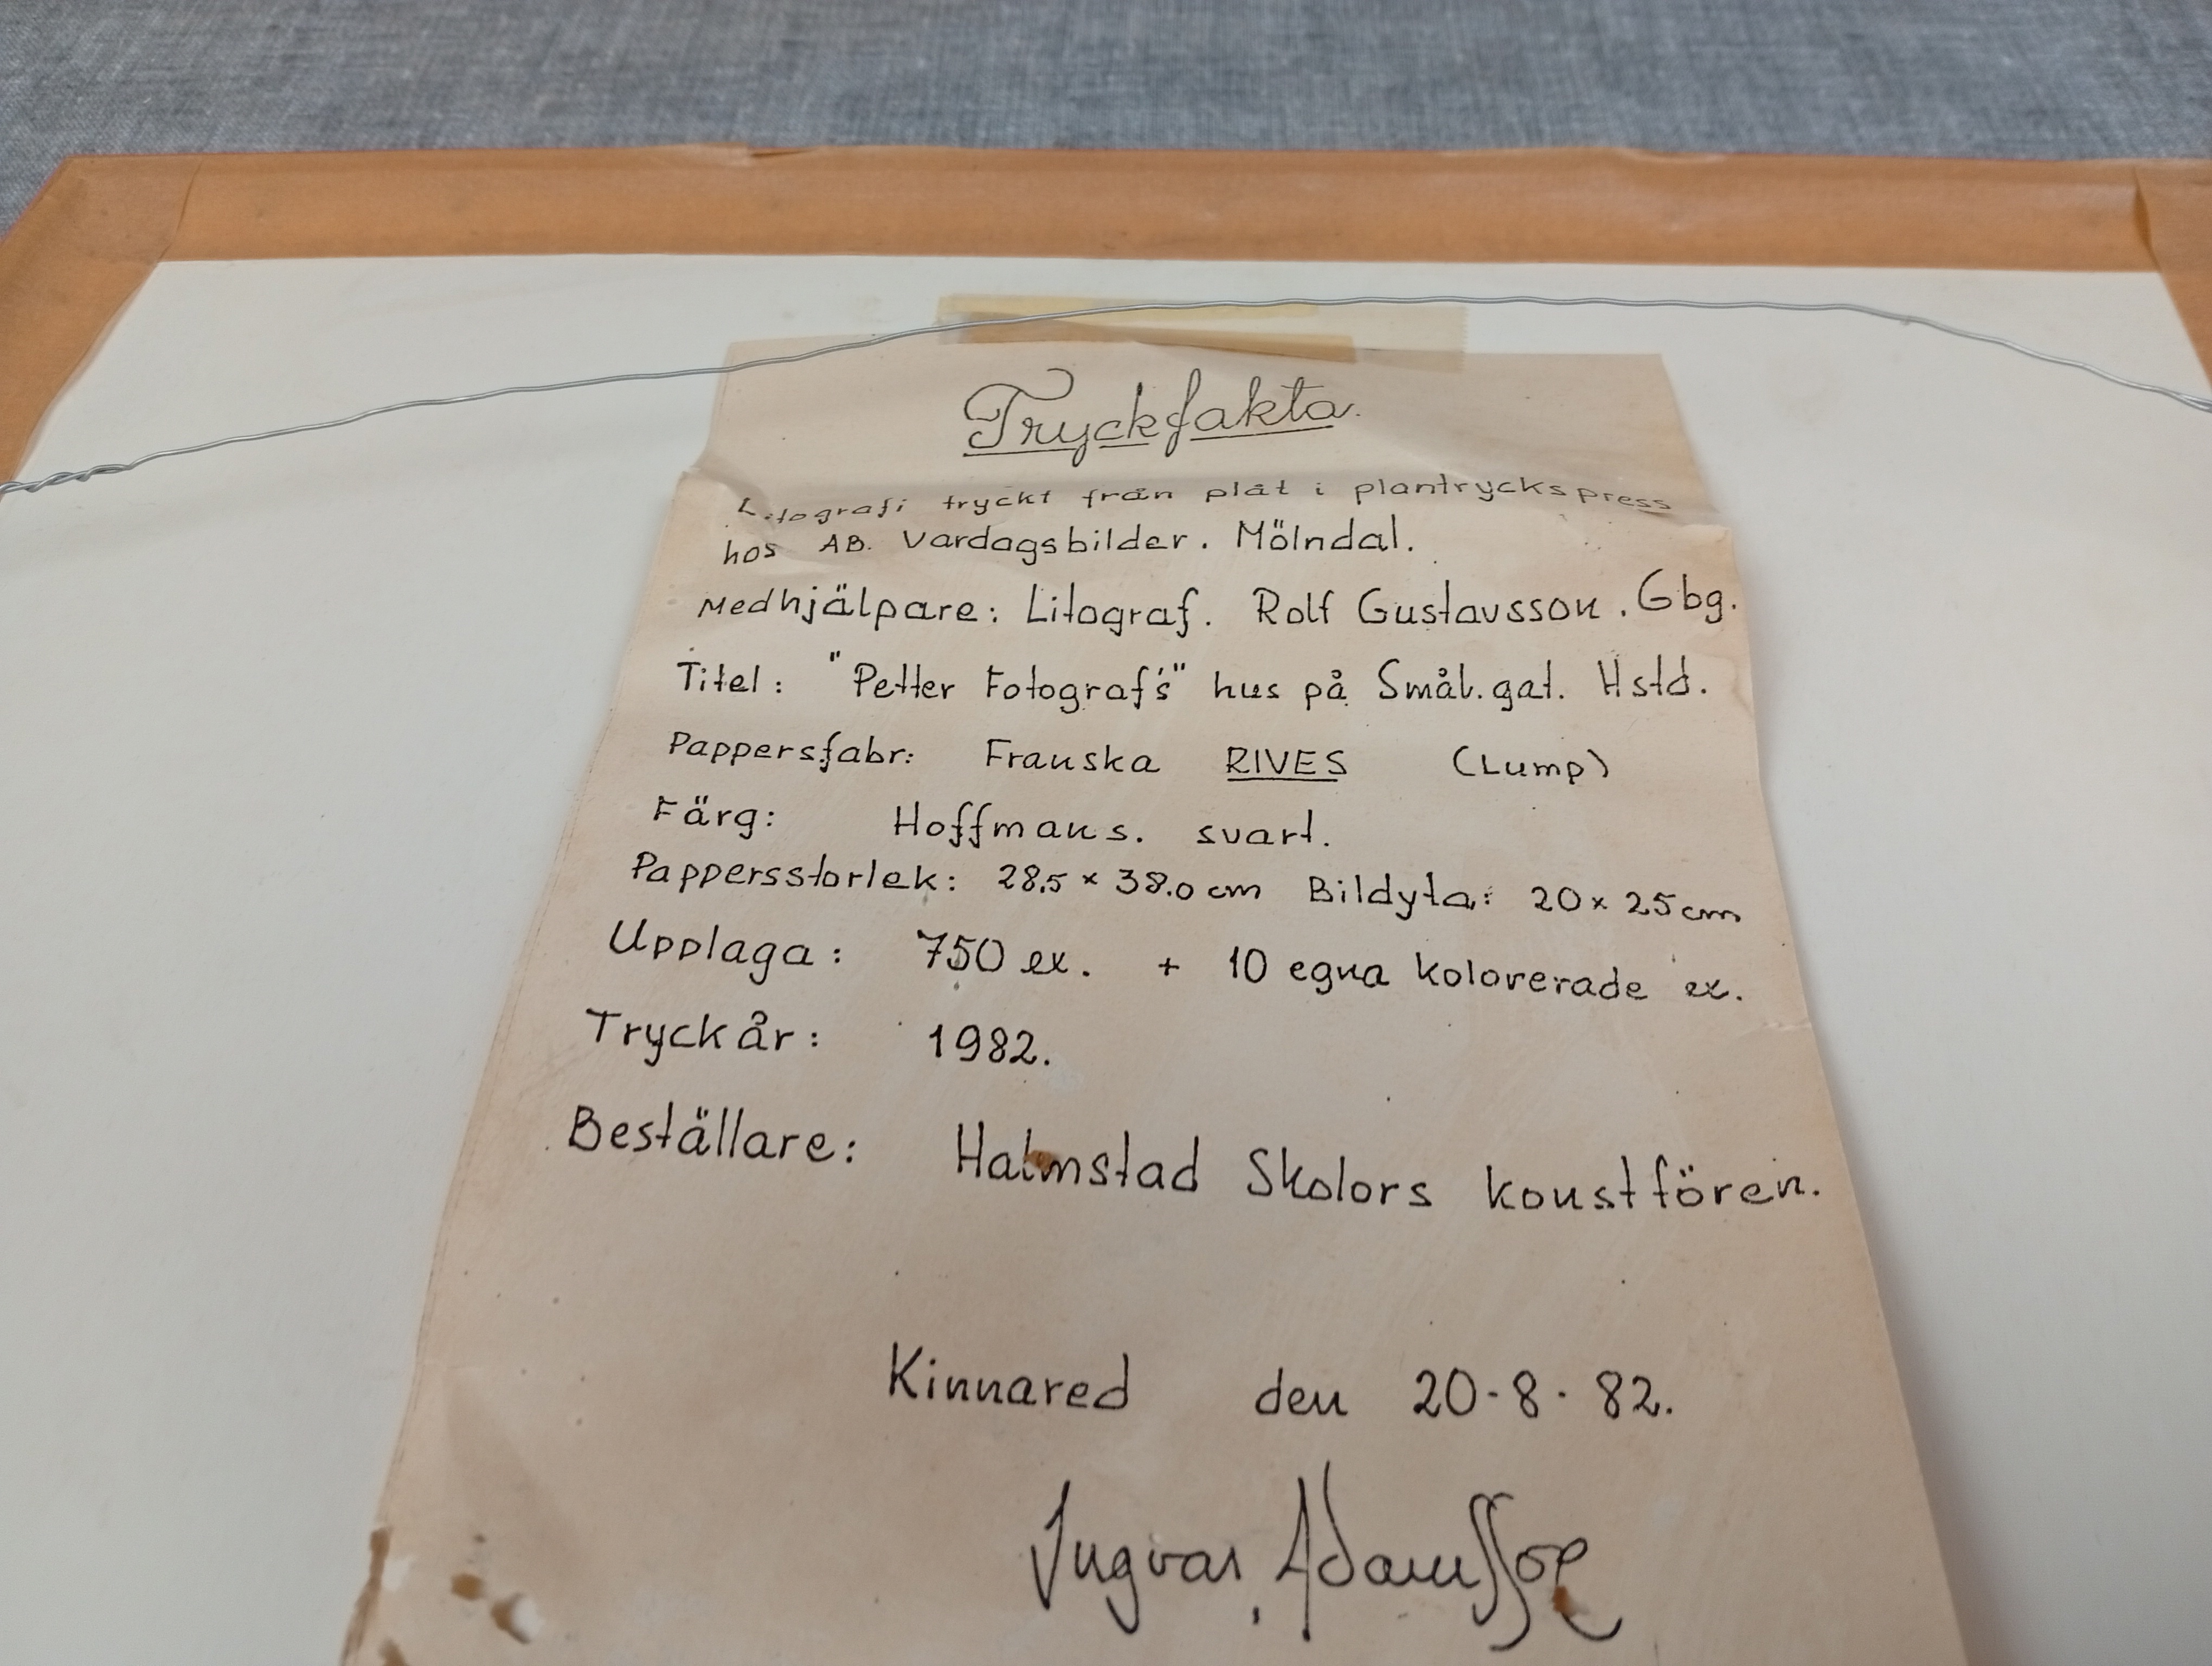 Tryckfakta.
Litografi tryckt från plåt i plantryckspress
hos AB. Vardagsbilder. Mölndal.
Medhjälpare: Litograf. Rolf Gustavsson. Gbg.
Titel: "Petter Fotograf's" hus på Smål.gat. Hstd.
Pappersfabr: Franska RIVES (Lump)
Färg: Hoffmans. svart.
Pappersstorlek: 28.5 × 38.0 cm Bildyta: 20 × 25 cm
Upplaga: 750 ex. + 10 egna kolorerade ex.
Tryckår: 1982.
Beställare: Halmstad Skolors konstfören.
Kinnared den 20-8-82.
Ingvar Adamsson